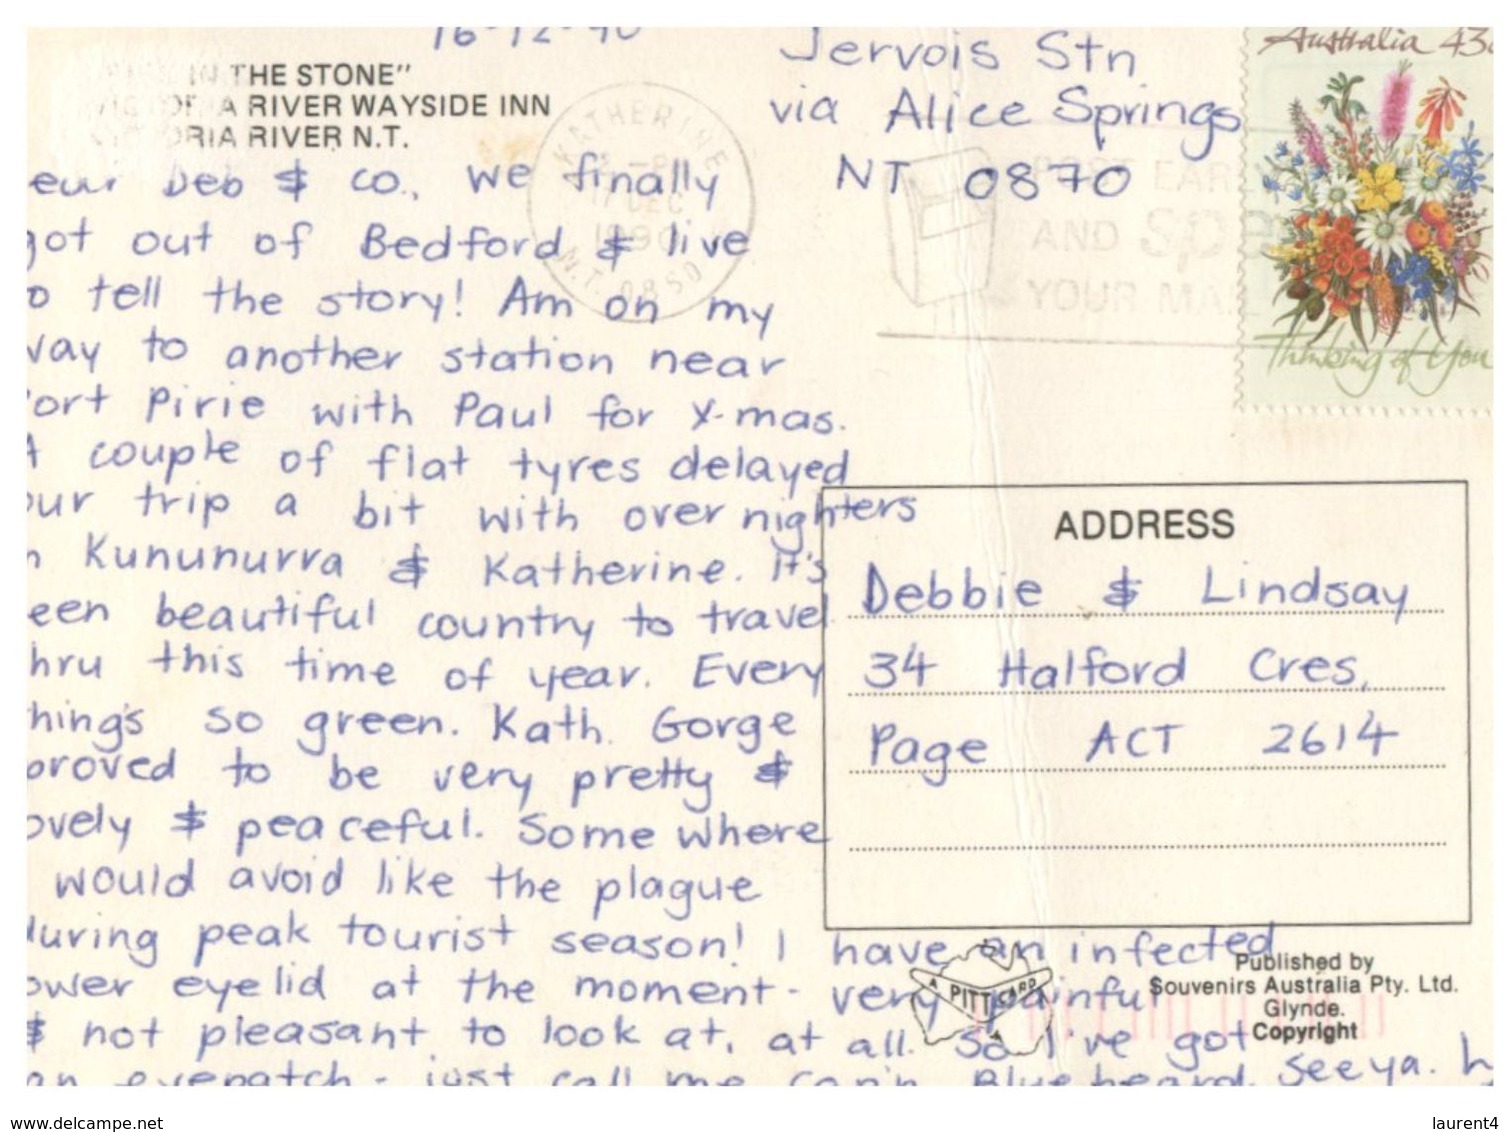 16-12-90
IN THE STONE"
VICTORIA RIVER WAYSIDE INN
VICTORIA RIVER N.T.
Jervois Stn
via Alice Springs
NT 0870
Australia 43c
Thinking of You
KATHERINE
17 DEC
1990
N.T. 0850
POST EARLY
AND
YOUR MAIL
ear Deb & co., We finally
got out of Bedford & live
o tell the story! Am on my
way to another station near
ort Pirie with Paul for X-mas.
A couple of flat tyres delayed
our trip a bit with over nighters
n Kununurra & Katherine. It's
een beautiful country to travel
hru this time of year. Every
hing's so green. Kath. Gorge
proved to be very pretty &
ovely & peaceful. Some where
would avoid like the plague
during peak tourist season! I have an infected
ower eyelid at the moment - very painful
& not pleasant to look at, at all. So I've got
an eyepatch - just call me Cap'n Bluebeard. See ya.
ADDRESS
Debbie & Lindsay
34 Halford Cres,
Page ACT 2614
A PITT CARD
Published by
Souvenirs Australia Pty. Ltd.
Glynde.
Copyright
www.delcampe.net
laurent4